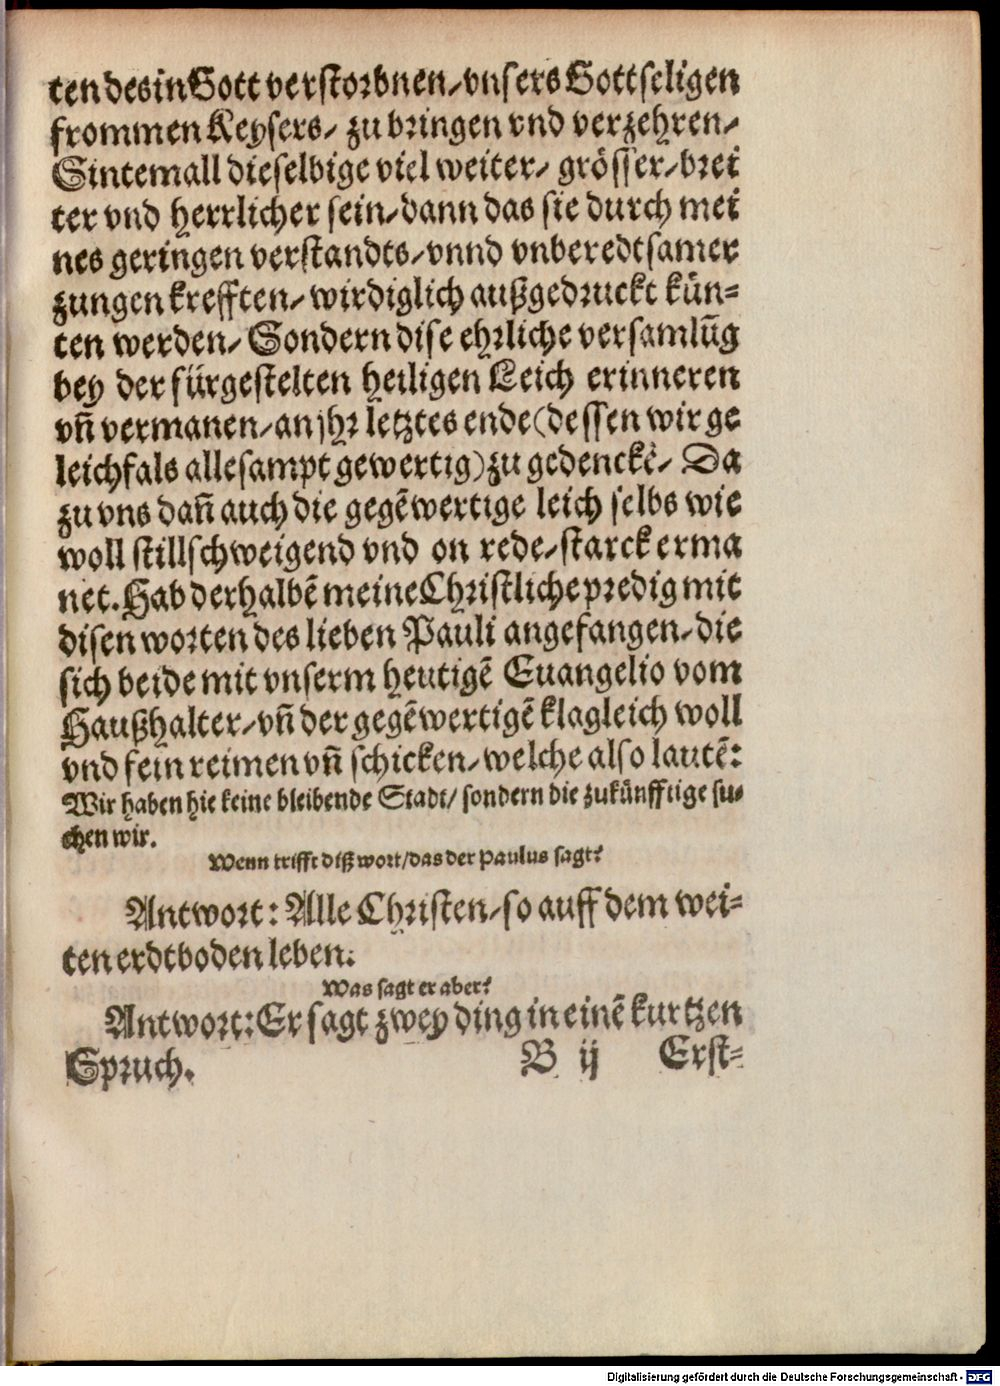 ten des in Gott verstorbnen/ vnsers Gottseligen
frommen Keysers/ zu bringen vnd verzehren/
Sintemall dieselbige viel weiter/ grösser/ brei
ter vnd herrlicher sein/ dann das sie durch mei
nes geringen verstandts/ vnnd vnberedtsamer
zungen krefften/ wirdiglich außgedruckt kün-
ten werden/ Sondern dise ehrliche versamlūg
bey der fürgestelten heiligen Leich erinneren
vn̄ vermanen/ an jhr letztes ende (dessen wir ge
leichfals allesampt gewertig) zu gedenckē/ Da
zu vns dan̄ auch die gegēwertige leich selbs wie
woll stillschweigend vnd on rede/ starck erma
net. Hab derhalbē meine Christliche predig mit
disen worten des lieben Pauli angefangen/ die
sich beide mit vnserm heutigē Euangelio vom
Haußhalter/ vn̄ der gegēwertigē klagleich woll
vnd fein reimen vn̄ schicken/ welche also lautē:
Wir haben hie keine bleibende Stadt/ sondern die zukünfftige su-
chen wir.
Wenn trifft diß wort/ das der Paulus sagt?
Antwort: Alle Christen/ so auff dem wei-
ten erdtboden leben.
Was sagt er aber?
Antwort: Er sagt zwey ding in einē kurtzen
Spruch. B ij Erst-
Digitalisierung gefördert durch die Deutsche Forschungsgemeinschaft - DFG